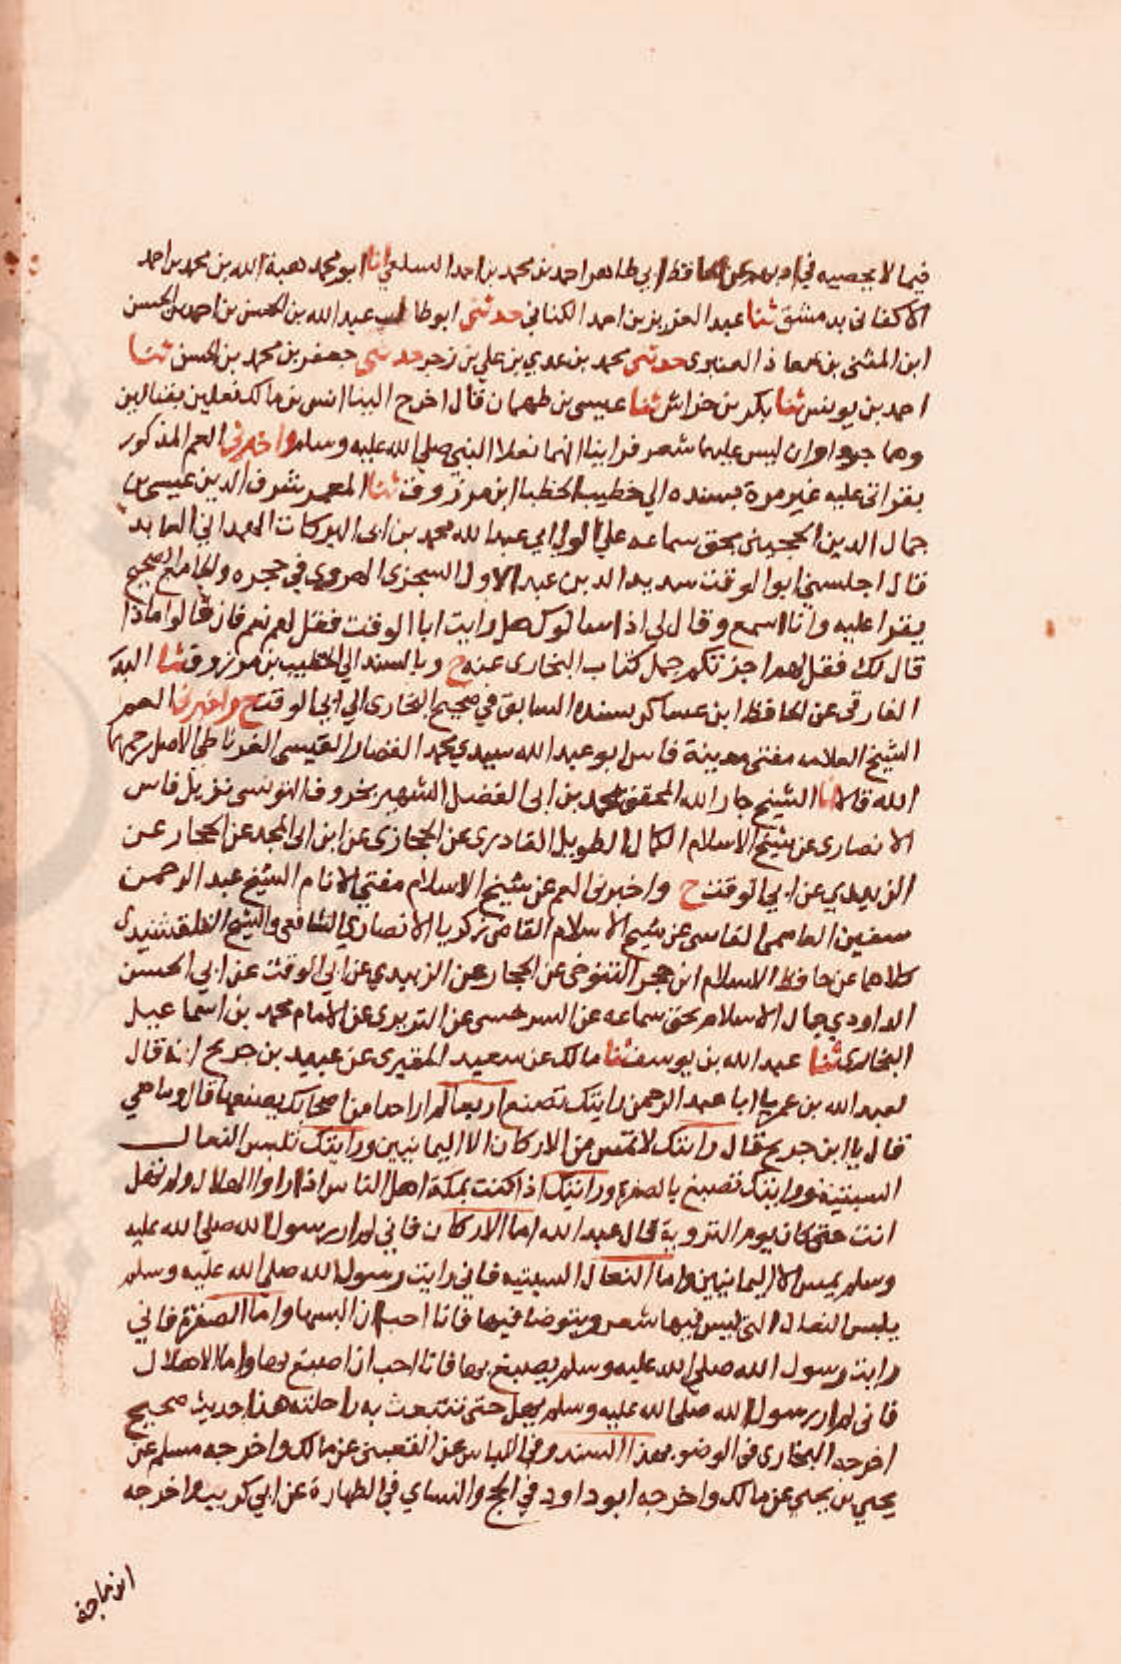 فيما لا يحصيه في عن الحافظ ابي طاهر احمد بن محمد بن احمد السلفي انا ابو محمد هبة الله بن محمد بن احمد
الاكفانى بدمشق ثنا عبد العزيز بن احمد الكتاني حدثني ابو طالب عبد الله بن الحسن بن احمد بن الحسن
ابن المثنى بن معاذ العنبرى حدثني محمد بن عدي بن علي بن زحر حدثني جعفر بن محمد بن الحسن ثنا
احمد بن يونس ثنا بكر بن خراش ثنا عيسى بن طهمان قال اخرج الينا انس بن مالك نعلين بقبالين
وهما جرداوان ليس عليهما شعر فرايناانهما نعلا النبي صلى الله عليه وسلم واخبرني العم المذكور
بقراتى عليه غير مرة بسنده الي خطيب الخطبا ابن مرزوق ثنا المعمر شرف الدين عيسى بن
جمال الدين الحجيى بحق سماعه علي الولي ابي عبد الله محمد بن ابى البركات الهمداني العابد
قال اجلسني ابوا الوقت سديد الدين عبد الاول السجزى الهروي في حجره والجامع الصحيح
يقرا عليه وانا اسمع وقال لي اذا سالوك هل رايت ابا الوقت فقل لهم نعم فان قالوا ماذا
قال لك فقل لهم اجزتكم جمل كتاب البخارى عنه ح وبالسند الي الخطيب بن مرزوق ثنا البدر
الفارقى عن الحافظ ابن عساكر بسنده السابق في صحيح البخارى الي ابى الوقت ح واخبرنا العم
الشيخ العلامه مفتى مدينة فاس ابو عبد الله سيدي محمد القصار القيسى الغرناطى الاصل رحمهما
الله قالا انا الشيخ جار الله المحقق محمد بن ابى الفضل الشهير بخروف التونسى نزيل فاس
الانصارى عن شيخ الاسلام الكمال الطويل القادرى عن الحجازى عن ابن ابى المجد عن الحجار عن
الزبيدي عن ابي الوقت ح واخبرنا العم عن شيخ الاسلام مفتي الانام الشيخ عبد الرحمن
سفين العاصمى الفاسى عن شيخ الاسلام القاضى زكريا الانصاري الشافعى والشيخ القلقشندى
كلاهما عن حافظ الاسلام ابن حجر التنوخى عن الحجار عن الزبيدي عن ابي الوقت عن ابي الحسن
الداودي جمال الاسلام بحق سماعه عن السرخسى عن الفربرى عن الامام محمد بن اسماعيل
البخارى ثنا عبد الله بن يوسف ثنا مالك عن سعيد المقبرى عن عبيد بن جريج انه قال
لعبد الله بن عمر يا ابا عبد الرحمن رايتك تصنع اربعا لم ار احدا من اصحابك يصنعها قال وما هي
قال يا ابن جريج قال رايتك لا تمس من الاركان الا اليمانيين ورايتك تلبس النعال
السبتية ورايتك تصبغ بالصفرة ورايتك اذا كنت بمكة اهل الناس اذا راوا الهلال ولم تهل
انت حتى كان يوم التروية قال عبد الله اما الاركان فاني لم ار رسول الله صلى الله عليه
وسلم يمس الا اليمانيين واما النعال السبتيه فاني رايت رسول الله صلى الله عليه وسلم
يلبس النعال التى ليس فيها شعر ويتوضا فيها فانا احب ان البسها واما الصفرة فاني
رايت رسول الله صلى الله عليه وسلم يصبغ بها فانا احب ان اصبغ بها واما الاهلال
فانى لم ار رسول الله صلى الله عليه وسلم يهل حتى تنبعث به راحلته هذا حديث صحيح
اخرجه البخارى فى الوضو بهذا السند وفي اللباس عن القعبنى عن مالك واخرجه مسلم عن
يحيي بن يحيي عن مالك واخرجه ابو داود في الحج والنساي في الطهارة عن ابي كريب واخرجه
ابن ماجة